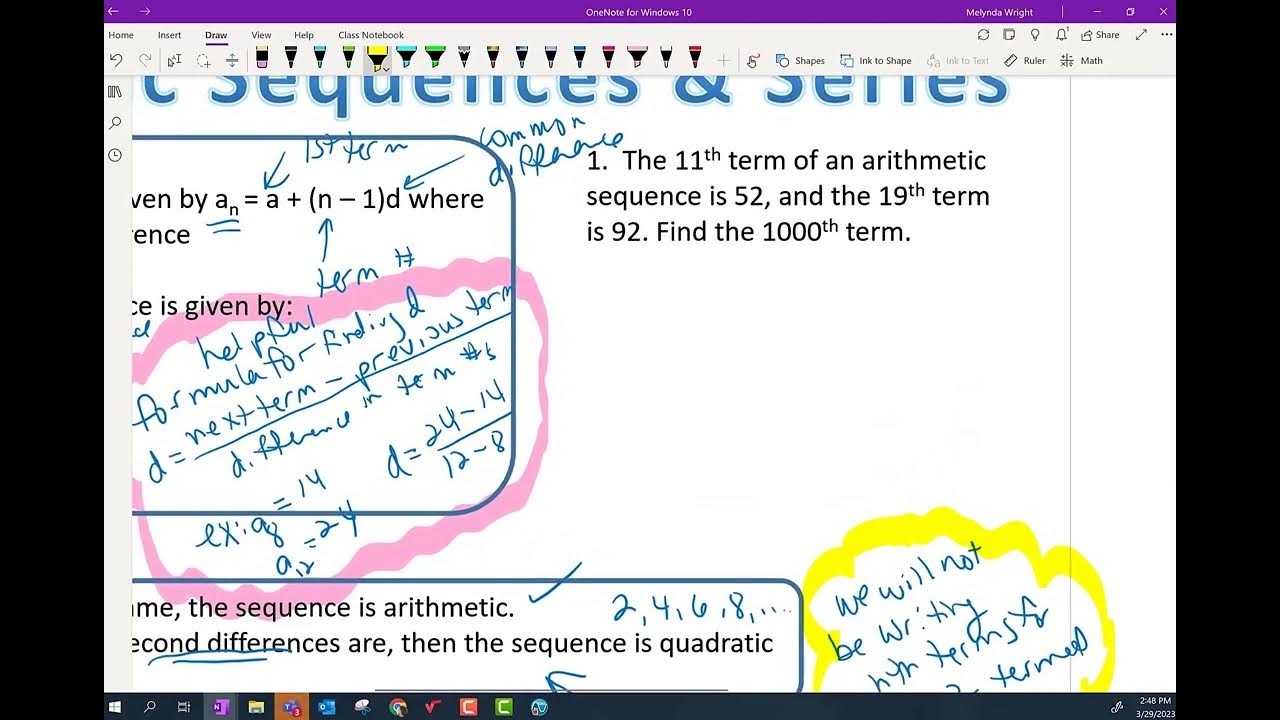 OneNote for Windows 10
Melynda Wright
Home Insert Draw View Help Class Notebook
Share
Shapes
Ink to Shape
Ink to Text
Ruler
Math
c Sequences & Series
1st term
common
difference
ven by an = a + (n – 1)d where
rence
term #
ce is given by:
helpful
formula for finding d
d = next term – previous term
difference in term #s
d = 24 – 14
12 – 8
ex: a8 = 14
a12 = 24
1. The 11th term of an arithmetic
sequence is 52, and the 19th term
is 92. Find the 1000th term.
ame, the sequence is arithmetic.
2, 4, 6, 8, ...
econd differences are, then the sequence is quadratic
we will not
be writing
nth terms for
termed
2:48 PM
3/29/2023